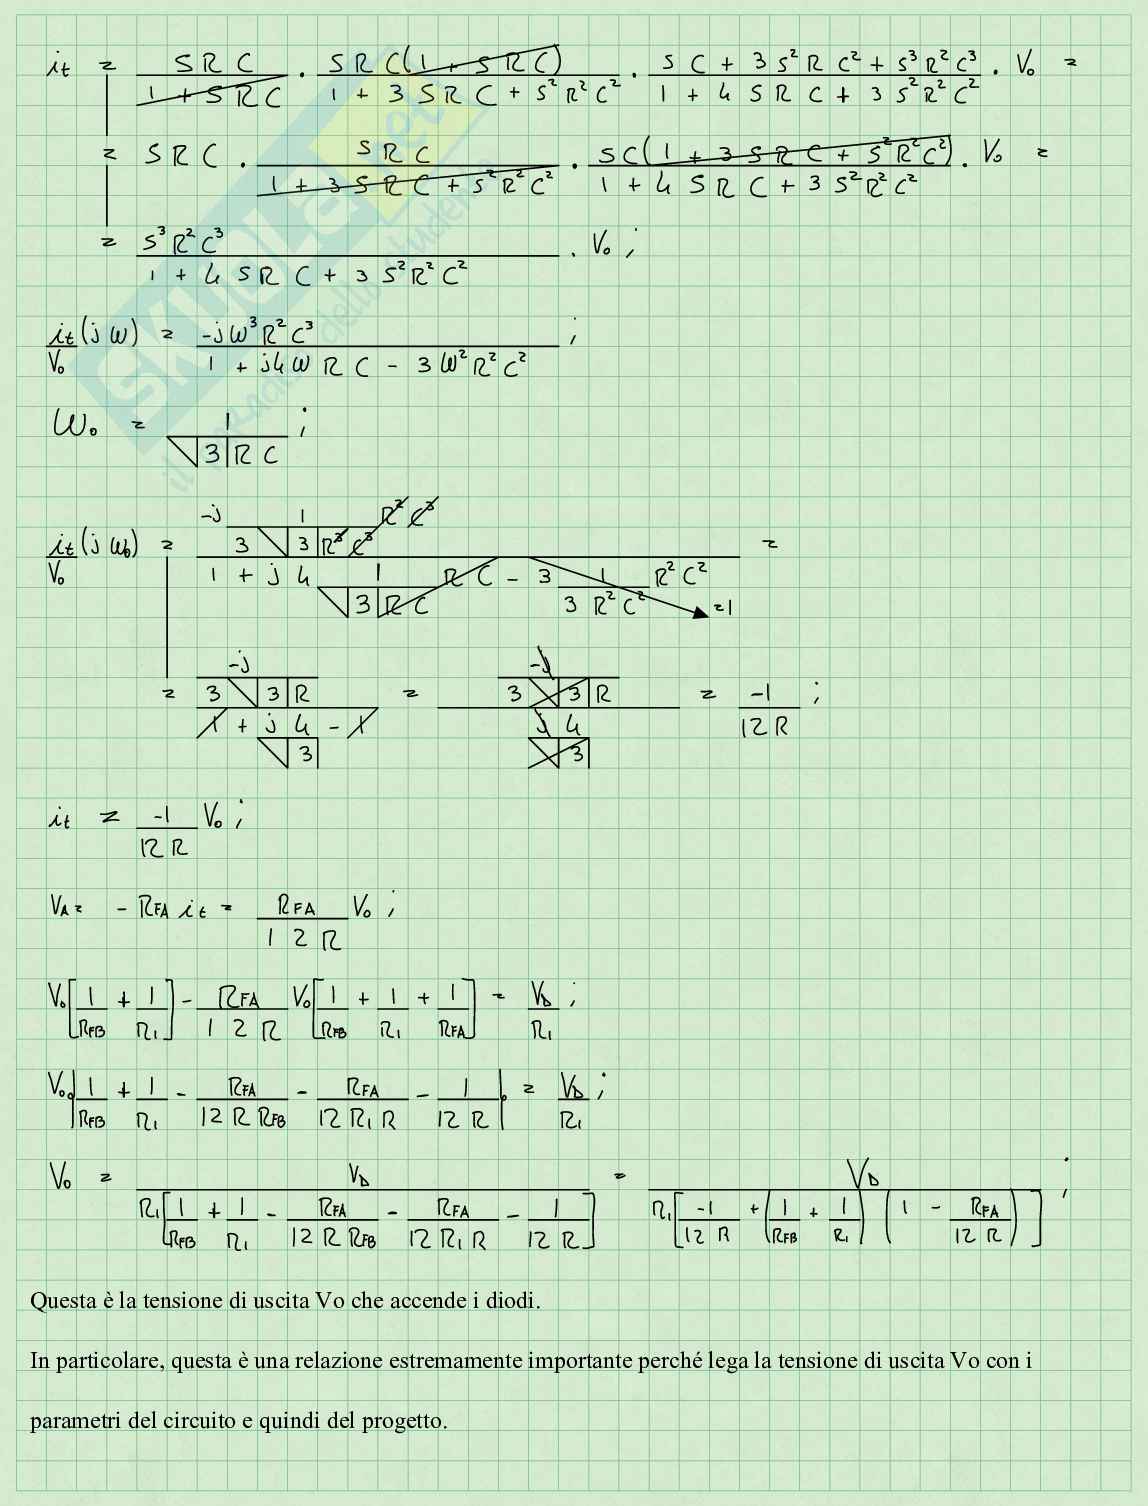 it = SRC / (1 + SRC) · SRC(1 + SRC) / (1 + 3SRC + S²R²C²) · (SC + 3S²RC² + S³R²C³) / (1 + 4SRC + 3S²R²C²) · Vo =
= SRC · SRC / (1 + 3SRC + S²R²C²) · SC(1 + 3SRC + S²R²C²) / (1 + 4SRC + 3S²R²C²) · Vo =
= S³R²C³ / (1 + 4SRC + 3S²R²C²) · Vo ;
it/Vo (jω) = -jω³R²C³ / (1 + j4ωRC - 3ω²R²C²) ;
ωo = 1 / (√3 RC) ;
it/Vo (jωo) = -j 1/(3√3 R³C³) R²C³ / (1 + j4 1/(√3 RC) RC - 3 1/(3R²C²) R²C²) = =1
= (-j / (3√3 R)) / (1 + j4/√3 - 1) = (-j / (3√3 R)) / (j4/√3) = -1 / 12R ;
it = -1 / 12R Vo ;
VA = - RFA it = RFA / 12R Vo ;
Vo[1/RFB + 1/R1] - RFA/12R Vo[1/RFB + 1/R1 + 1/RFA] = VD/R1 ;
Vo[1/RFB + 1/R1 - RFA/(12R RFB) - RFA/(12R1R) - 1/12R] = VD/R1 ;
Vo = VD / (R1[1/RFB + 1/R1 - RFA/(12R RFB) - RFA/(12R1R) - 1/12R]) = VD / (R1[-1/12R + (1/RFB + 1/R1)(1 - RFA/12R)]) ;
Questa è la tensione di uscita Vo che accende i diodi.
In particolare, questa è una relazione estremamente importante perché lega la tensione di uscita Vo con i
parametri del circuito e quindi del progetto.
SKUOLA.net